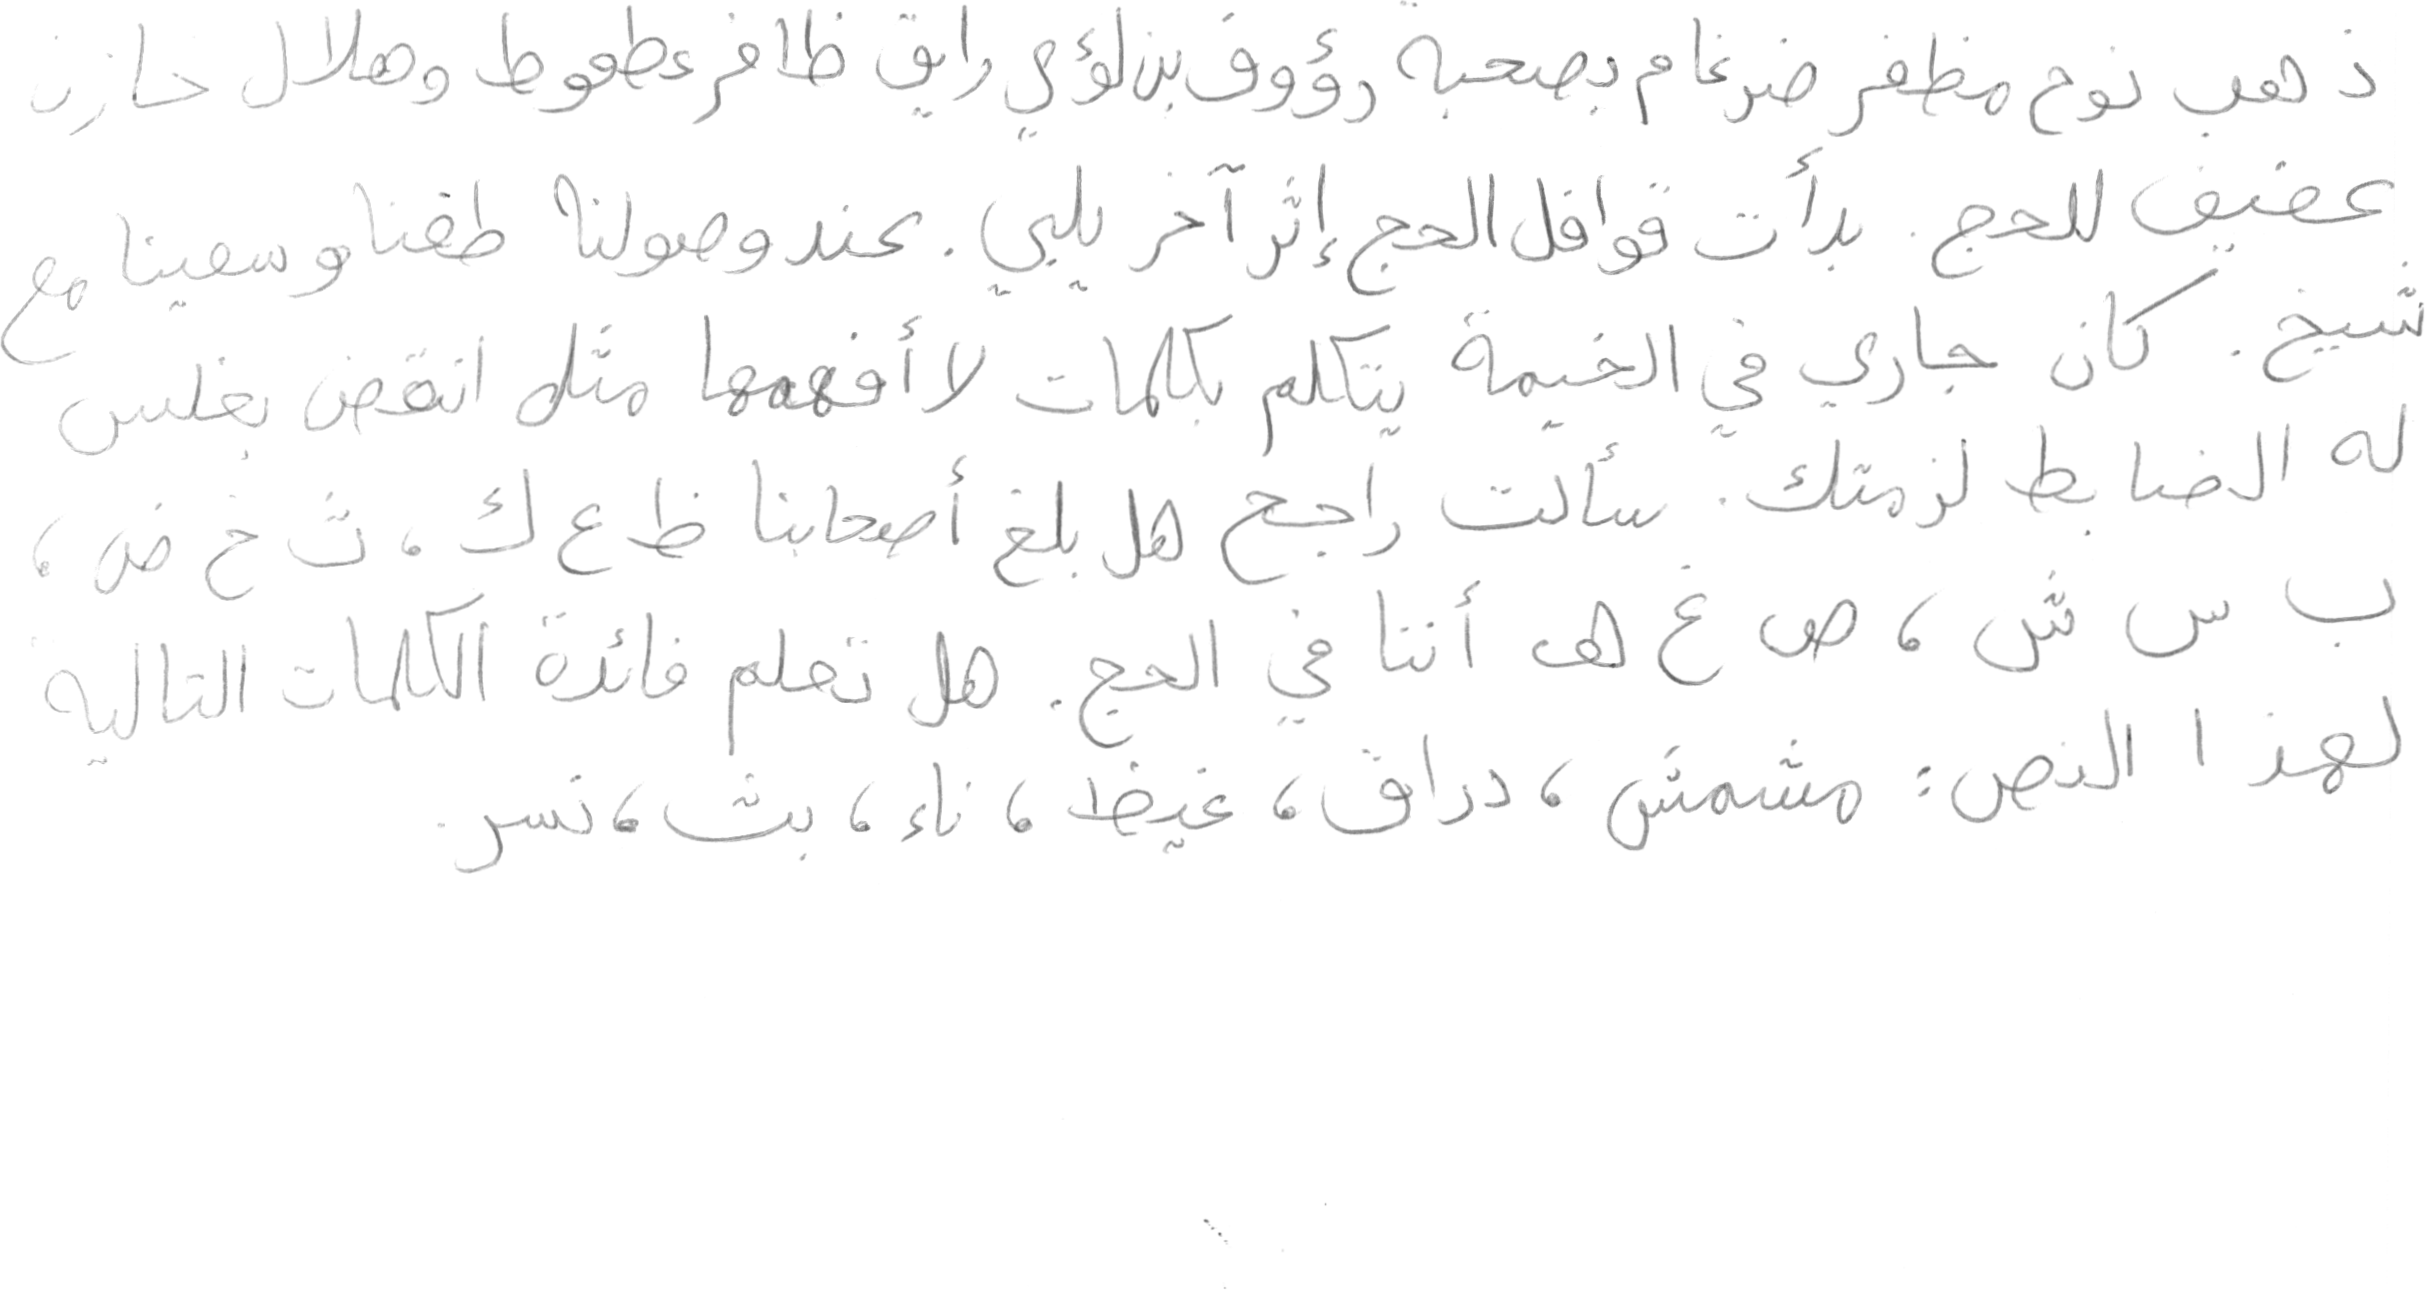 ذهب نوح مظفر ضرغام بصحبة رؤوف بن لؤي رايق ظافر عطعوط وهلال حازن
عضيف للحج. بدأت قوافل الحج إثر آخر يلبي. عند وصولنا طفنا وسعينا مع
شيخ. كان جاري في الخيمة يتكلم بكلمات لا أفهمها مثل انقض بغلس
له الضابط لزمتك. سألت راجح هل بلغ أصحابنا ظ ع ك، ث خ ض،
ب س ش، ص غ هـ أننا في الحج. هل تعلم فائدة الكلمات التالية
لهذا النص: مشمش، دراق، غيظ، ناء، بث، نسر.